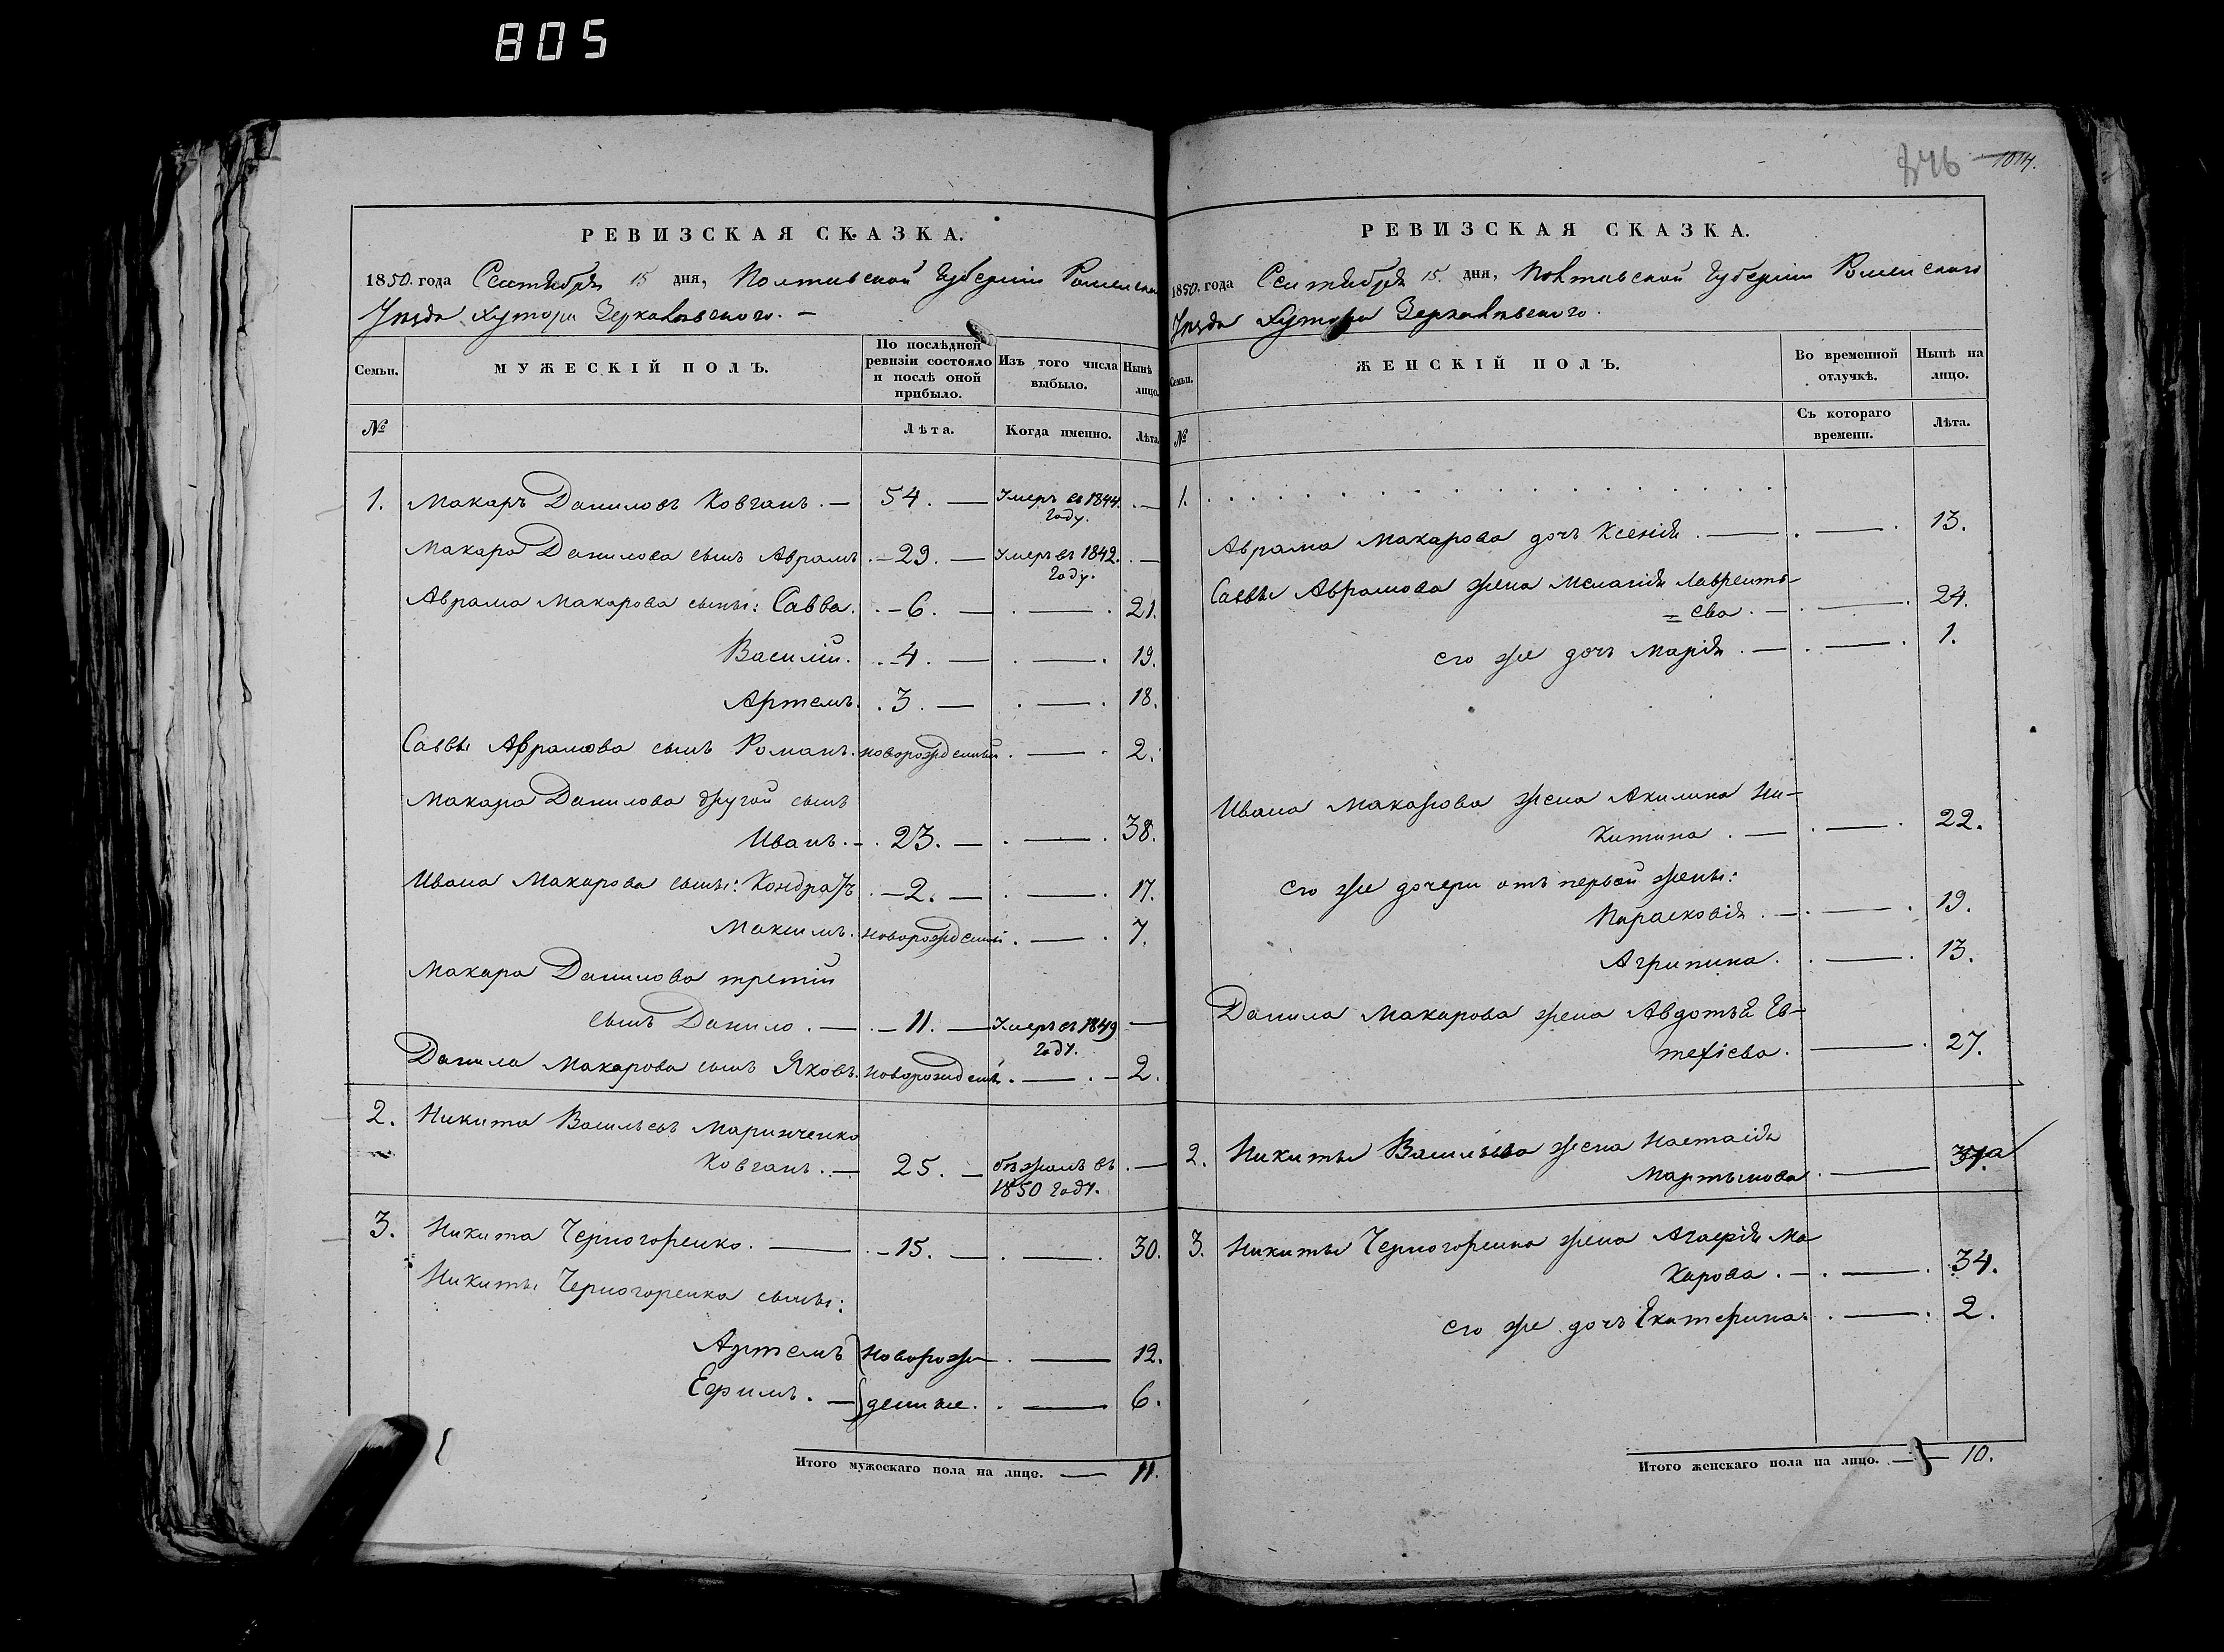 805
846 1014.
РЕВИЗСКАЯ СКАЗКА.
1850. года Сентября 15 дня, Полтавской Губерніи Роменска
Уезда Хутора
Семьи.
МУЖЕСКІЙ ПОЛЪ.
По послѣдней ревизіи состояло и послѣ оной прибыло.
Изъ того числа выбыло.
Нынѣ лицо.
№
Лѣта.
Когда именно.
Лѣта.
1. Макаръ Даниловъ Ковганъ. — 54. — Умеръ въ 1844. —
году.
Макара Данилова сынъ Аврамъ. — 29. — Умеръ въ 1842. —
году.
Аврама Макарова сыны: Савва. — 6. — . — . 21.
Василій. . 4. — . — . 19.
Артемъ. . 3. — . — . 18.
Саввы Аврамова сынъ Романъ. новорожденный . — . 2.
Макара Данилова другой сынъ
Иванъ. — . 23. — . — . 38.
Ивана Макарова сыны: Кондратъ . — 2. — . — . 17.
Максимъ. новорожденный . — . 7.
Макара Данилова третій
сынъ Данило. — . — 11. — Умеръ въ 1849 —
году.
Данила Макарова сынъ Яковъ. новорожденъ. — . — 2.
2. Никита Васильевъ Маринченко
Ковганъ. — 25. — бѣжалъ въ . —
1850 году.
3. Никита Черногоренко. — . — 15. — . — . 30.
Никиты Черногоренка сыны:
Артемъ новорож— . — 12.
Ефимъ. — денные. . — 6.
Итого мужескаго пола на лицо. — 11.
РЕВИЗСКАЯ СКАЗКА.
1850. года Сентября 15. дня, Полтавской Губерніи Роменского
Уезда Хутора
Семьи.
ЖЕНСКІЙ ПОЛЪ.
Во временной отлучкѣ.
Нынѣ на лицо.
№
Съ котораго времени.
Лѣта.
1. . . . . . . . . . . . . . . . . . . . . . .
Аврама Макарова дочь Ксенія. — . — . 13.
Саввы Аврамова жена Мелагія Лавренть—
= ева. — . — . 24.
его же дочь Марія. — . — . 1.
Ивана Макарова жена Акилина Ни—
китина. — . — . 22.
его же дочери отъ первой жены:
Парасковія. — . — . 19.
Агрипина. . — . 13.
Данила Макарова жена Авдотья Ев—
техіева. — . 27.
2. Никиты Васильева жена Настасія
Мартынова. —
3. Никиты Черногоренка жена Агафія Ма
карова. — . — . 34.
его же дочь Екатерина. . — . 2.
Итого женскаго пола на лицо. — — 10.